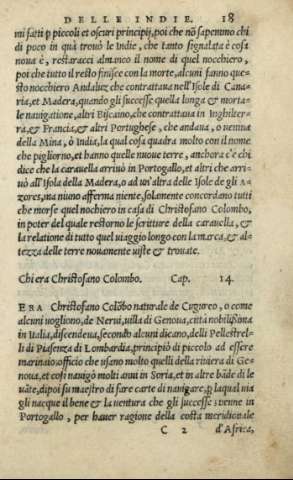 DELLE INDIE. 18
mi fatti ꝑ piccoli et oscuri principij, poi che nõ sapemmo chi
di poco in quà trouò le Indie, che tanto signalata è cosa
noua è, restaracci almanco il nome di quel nocchiero,
poi che tutto il resto finisce con la morte, alcuni fanno que-
sto nocchiero Andaluz che contrattaua nell'Isole di Cana-
ria, et Madera, quando gli successe quella longa & morta-
le nauigatione, altri Biscaino, che contrattaua in Inghilter-
ra, & Francia, & altri Portughese, che andaua, o ueniua
della Mina, ò India, la qual cosa quadra molto con il nome
che pigliorno, et hanno quelle nuoue terre, anchora c'è chi
dice che la carauella arriuò in Portogallo, et altri che arri-
uò all'Isola della Madera, o ad un'altra delle Isole de gli A-
zores, ma niuno afferma niente, solamente concordano tutti
che morse quel nochiero in casa di Christofano Colombo,
in poter del quale restorno le scritture della carauella, &
la relatione di tutto quel uiaggio longo con la marca, & al-
tezza delle terre nouamente uiste & trouate.
Chi era Christofano Colombo. Cap. 14.
ERA Christofano Colõbo naturale de Cugureo, o come
alcuni uogliono, de Nerui, uilla di Genoua, città nobilissima
in Italia, discendeua, secondo alcuni dicano, delli Pellestrel-
li di Piasenza di Lombardia, principiò di piccolo ad essere
marinaio officio che usano molto quelli della riuiera di Ge-
noua, et così nauigò molti anni in Soria, et in altre bãde di le
uãte, dipoi fu maestro di fare carte di nauigare, ꝑ laqual uia
gli nacque il bene & la uentura che gli successe, uenne in
Portogallo, per hauer ragione della costa meridionale
C 2 d'Africa,